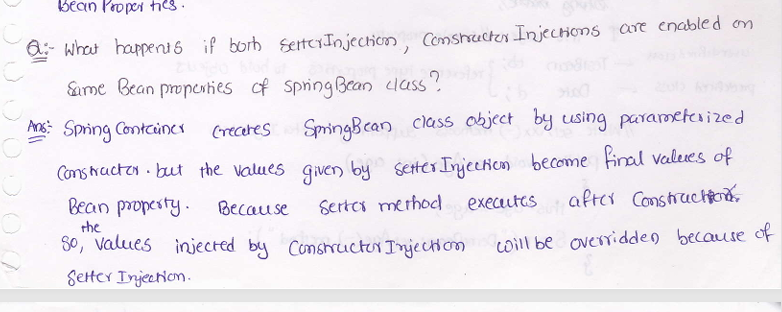 Bean Properties.
Q:- What happens if both SetterInjection, Constructor Injections are enabled on
same Bean properties of SpringBean class?
Ans: Spring Container creates SpringBean class object by using parameterized
Constructor. but the values given by setter Injection become final values of
Bean property. Because setter method executes after Constructor.
So, the values injected by Constructor Injection will be overridden because of
Setter Injection.